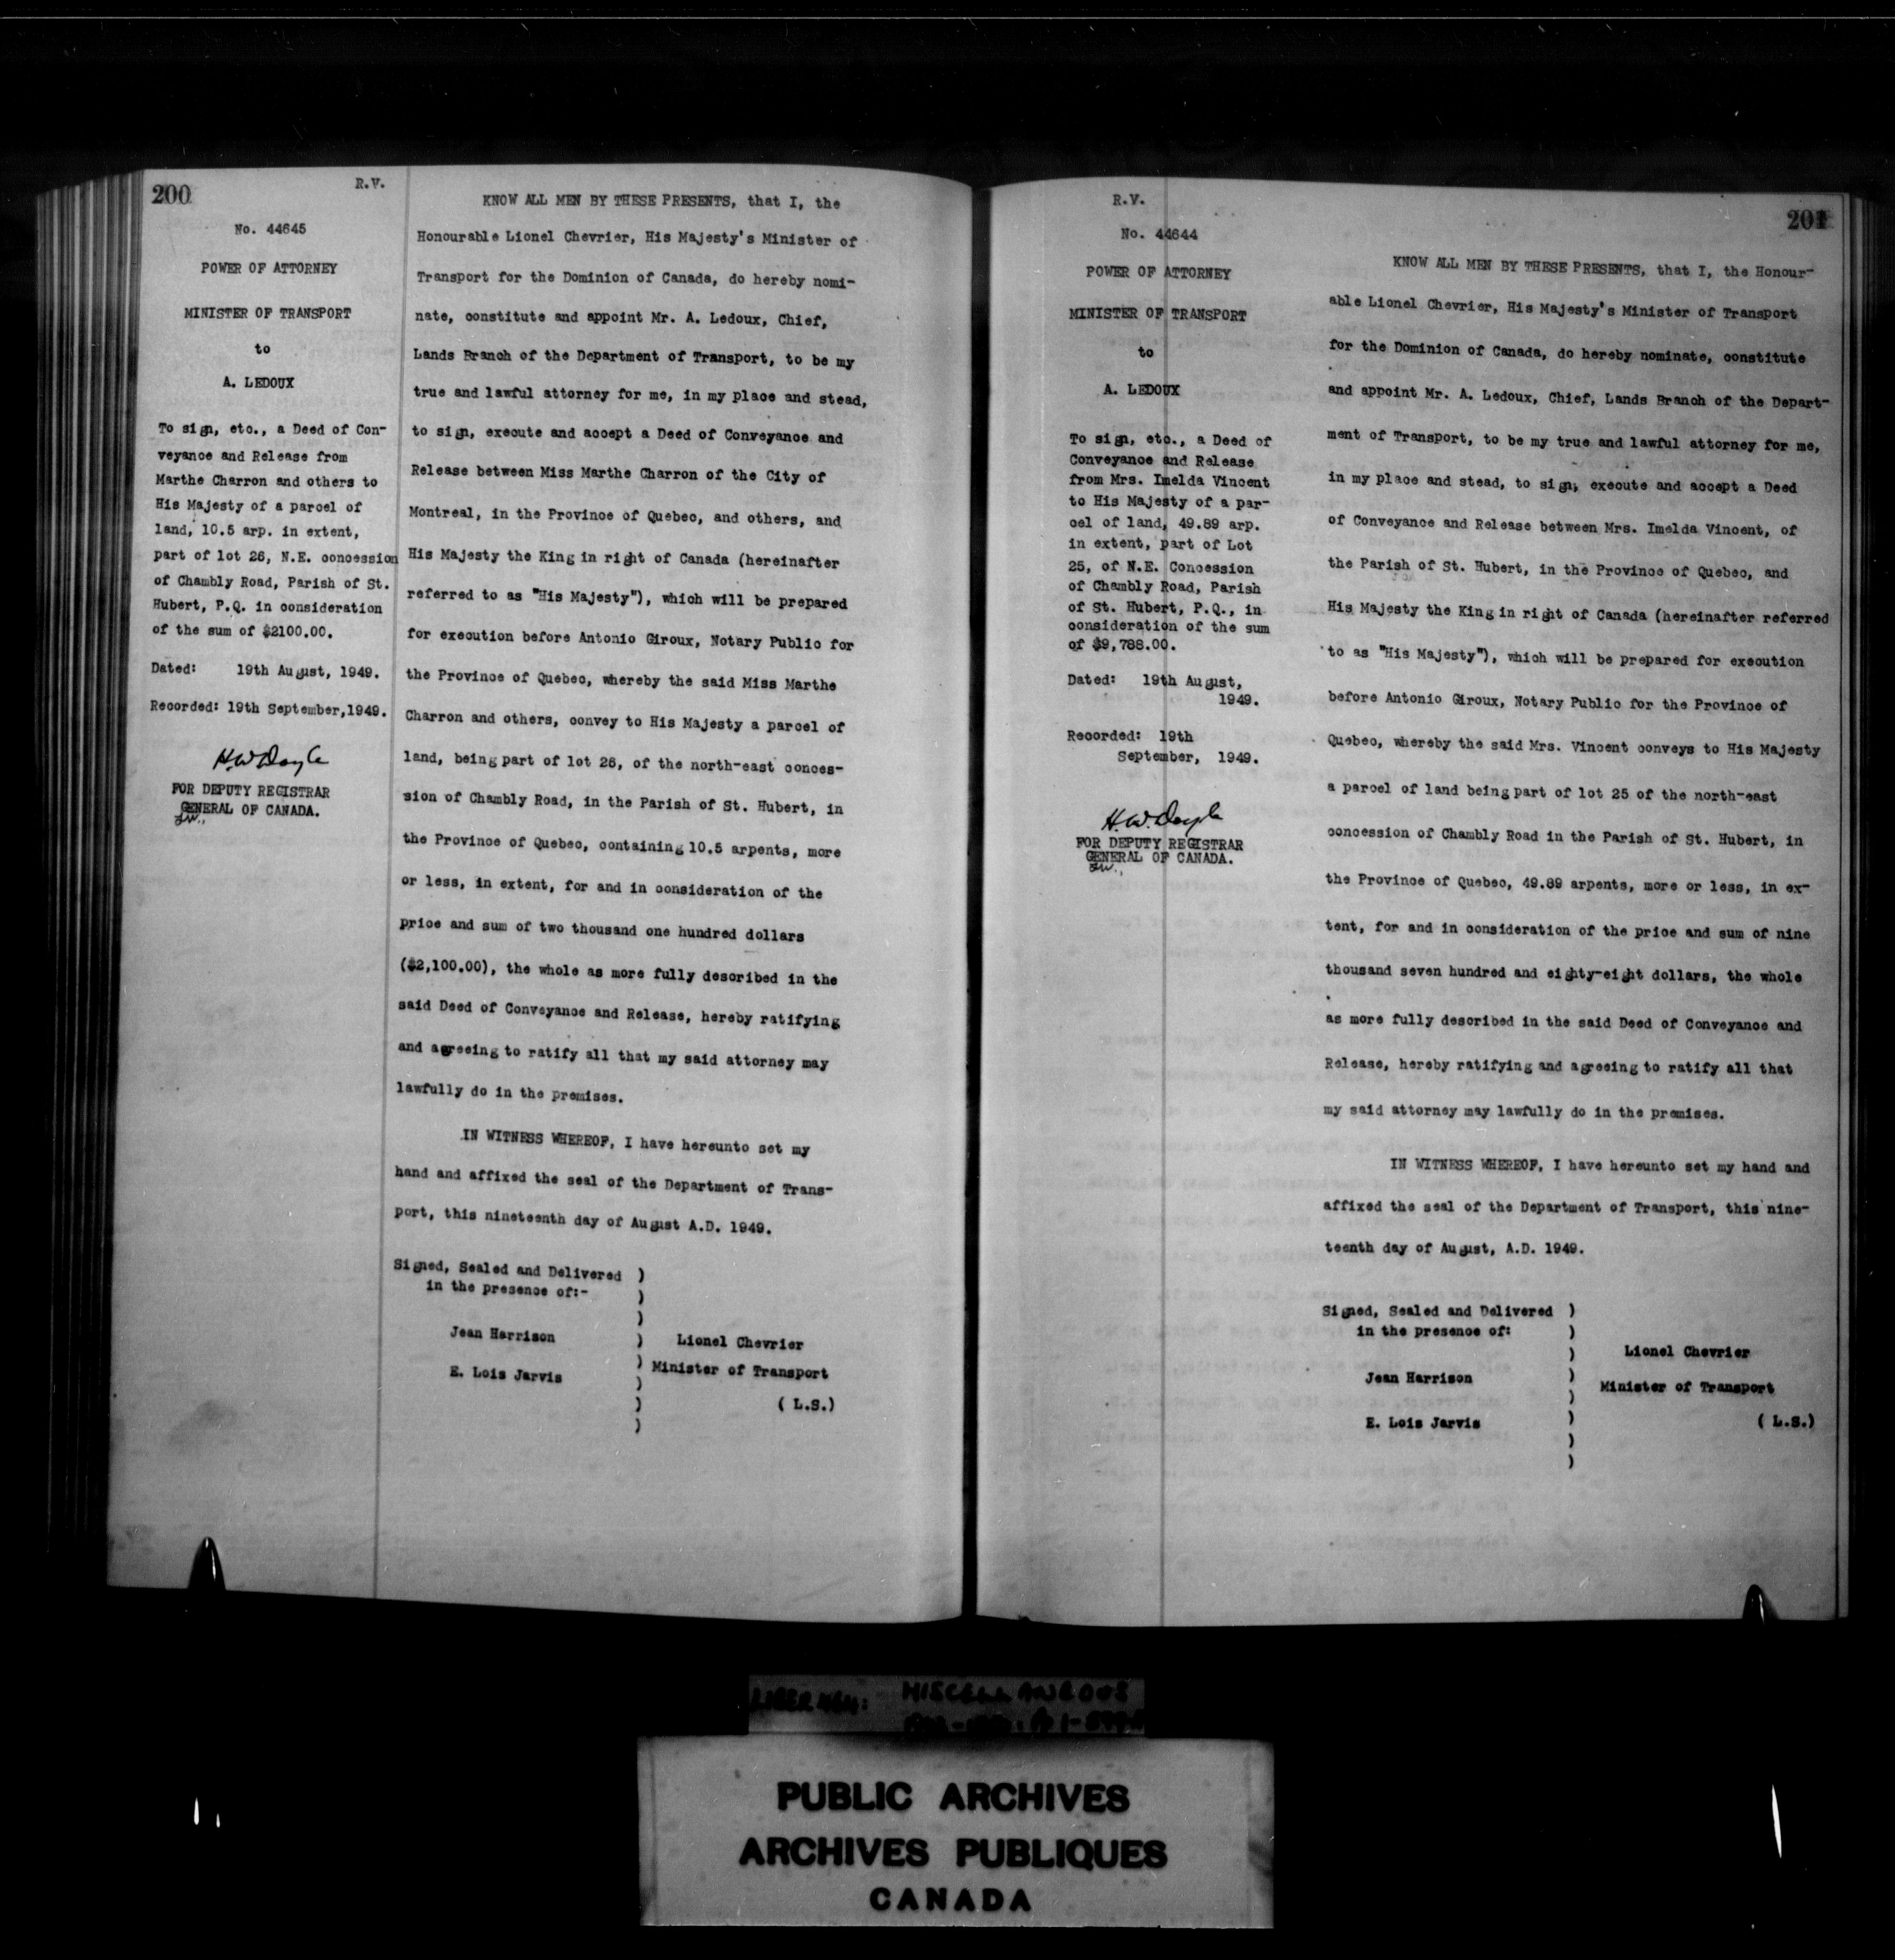 200
R.V.
No. 44645
POWER OF ATTORNEY
MINISTER OF TRANSPORT
to
A. LEDOUX
To sign, etc., a Deed of Con-
veyance and Release from
Marthe Charron and others to
His Majesty of a parcel of
land, 10.5 arp. in extent,
part of lot 26, N.E. concession
of Chambly Road, Parish of St.
Hubert, P.Q. in consideration
of the sum of $2100.00.
Dated: 19th August, 1949.
Recorded: 19th September,1949.
H.W.Doyle
FOR DEPUTY REGISTRAR
GENERAL OF CANADA.
KNOW ALL MEN BY THESE PRESENTS, that I, the
Honourable Lionel Chevrier, His Majesty's Minister of
Transport for the Dominion of Canada, do hereby nomi-
nate, constitute and appoint Mr. A. Ledoux, Chief,
Lands Branch of the Department of Transport, to be my
true and lawful attorney for me, in my place and stead,
to sign, execute and accept a Deed of Conveyance and
Release between Miss Marthe Charron of the City of
Montreal, in the Province of Quebec, and others, and
His Majesty the King in right of Canada (hereinafter
referred to as "His Majesty"), which will be prepared
for execution before Antonio Giroux, Notary Public for
the Province of Quebec, whereby the said Miss Marthe
Charron and others, convey to His Majesty a parcel of
land, being part of lot 26, of the north-east conces-
sion of Chambly Road, in the Parish of St. Hubert, in
the Province of Quebec, containing 10.5 arpents, more
or less, in extent, for and in consideration of the
price and sum of two thousand one hundred dollars
($2,100.00), the whole as more fully described in the
said Deed of Conveyance and Release, hereby ratifying
and agreeing to ratify all that my said attorney may
lawfully do in the premises.
IN WITNESS WHEREOF, I have hereunto set my
hand and affixed the seal of the Department of Trans-
port, this nineteenth day of August A.D. 1949.
Signed, Sealed and Delivered )
in the presence of:- )
)
Jean Harrison ) Lionel Chevrier
) Minister of Transport
E. Lois Jarvis )
) ( L.S.)
)
R.V.
201
No. 44644
POWER OF ATTORNEY
MINISTER OF TRANSPORT
to
A. LEDOUX
To sign, etc., a Deed of
Conveyance and Release
from Mrs. Imelda Vincent
to His Majesty of a par-
cel of land, 49.89 arp.
in extent, part of Lot
25, of N.E. Concession
of Chambly Road, Parish
of St. Hubert, P.Q., in
consideration of the sum
of $9,788.00.
Dated: 19th August,
1949.
Recorded: 19th
September, 1949.
H.W.Doyle
FOR DEPUTY REGISTRAR
GENERAL OF CANADA.
KNOW ALL MEN BY THESE PRESENTS, that I, the Honour-
able Lionel Chevrier, His Majesty's Minister of Transport
for the Dominion of Canada, do hereby nominate, constitute
and appoint Mr. A. Ledoux, Chief, Lands Branch of the Depart-
ment of Transport, to be my true and lawful attorney for me,
in my place and stead, to sign, execute and accept a Deed
of Conveyance and Release between Mrs. Imelda Vincent, of
the Parish of St. Hubert, in the Province of Quebec, and
His Majesty the King in right of Canada (hereinafter referred
to as "His Majesty"), which will be prepared for execution
before Antonio Giroux, Notary Public for the Province of
Quebec, whereby the said Mrs. Vincent conveys to His Majesty
a parcel of land being part of lot 25 of the north-east
concession of Chambly Road in the Parish of St. Hubert, in
the Province of Quebec, 49.89 arpents, more or less, in ex-
tent, for and in consideration of the price and sum of nine
thousand seven hundred and eighty-eight dollars, the whole
as more fully described in the said Deed of Conveyance and
Release, hereby ratifying and agreeing to ratify all that
my said attorney may lawfully do in the premises.
IN WITNESS WHEREOF, I have hereunto set my hand and
affixed the seal of the Department of Transport, this nine-
teenth day of August, A.D. 1949.
Signed, Sealed and Delivered )
in the presence of: )
) Lionel Chevrier
Jean Harrison )
) Minister of Transport
E. Lois Jarvis ) ( L.S.)
)
)
MISCELLANEOUS
PUBLIC ARCHIVES
ARCHIVES PUBLIQUES
CANADA